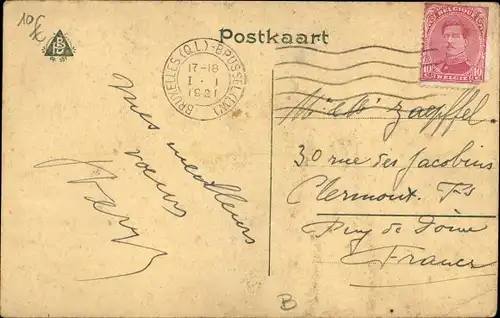 10 €
Postkaart
BRUXELLES (Q.L.) - BRUSSEL (L.W.)
17-18
1 · I
1921
BELGIQUE
10 10
BELGIË
Mes meilleurs
vœux
Zaepffel
30 rue des Jacobins
Clermont. Fd
Puy de Dôme
France
B